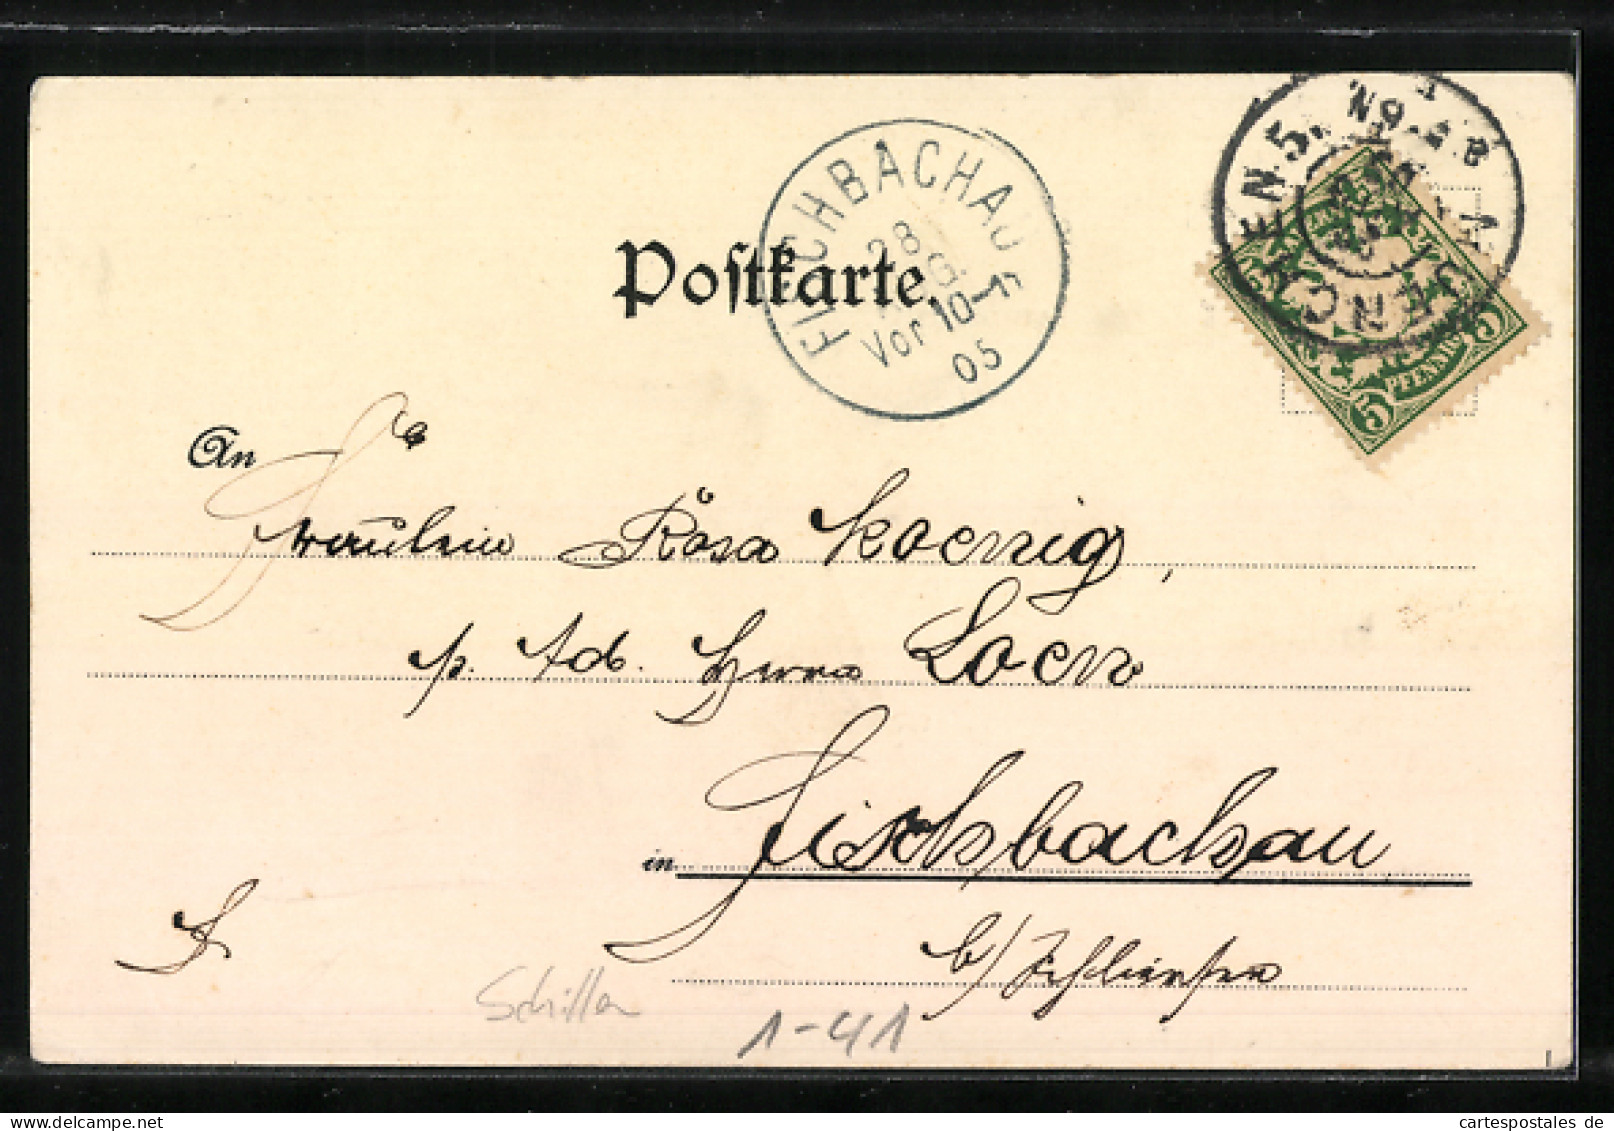 Postkarte.
FISCHBACHAU
28
Vor 10-11
05
MÜNCHEN.5.
5
5
PFENNIG
An
Fräulein Rosa Koenig,
p. Ad. Herrn Loew
in Fischbachau
b/Schliersee
Schiller
1-41
cartespostales de